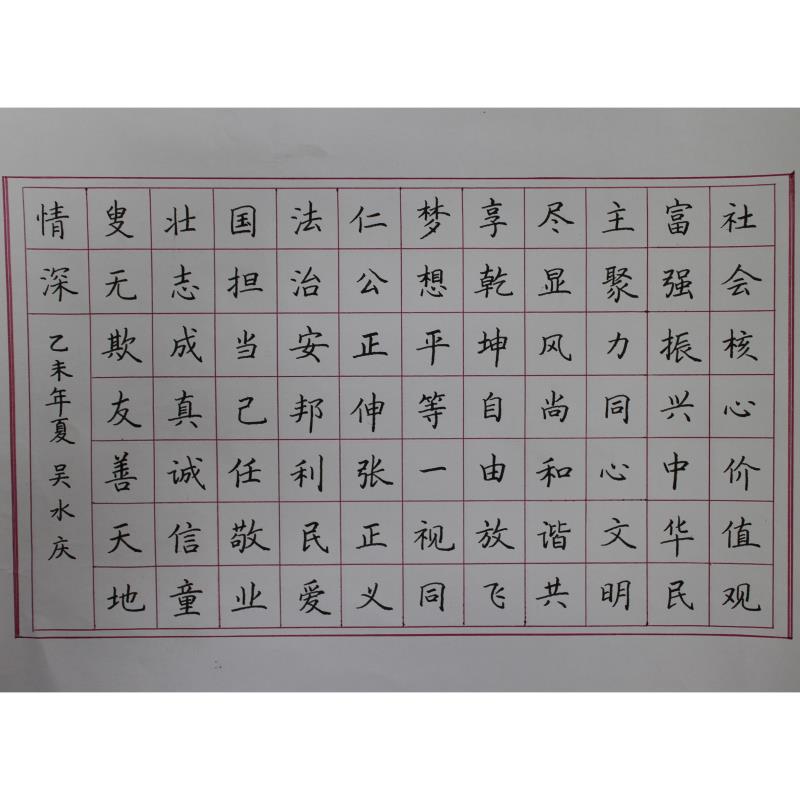 社会核心价值观
富强振兴中华民
主聚力同心文明
尽显风尚和谐共
享乾坤自由放飞
梦想平等一视同
仁公正伸张正义
法治安邦利民爱
国担当己任敬业
壮志成真诚信童
叟无欺友善天地
情深
乙未年夏 吴水庆